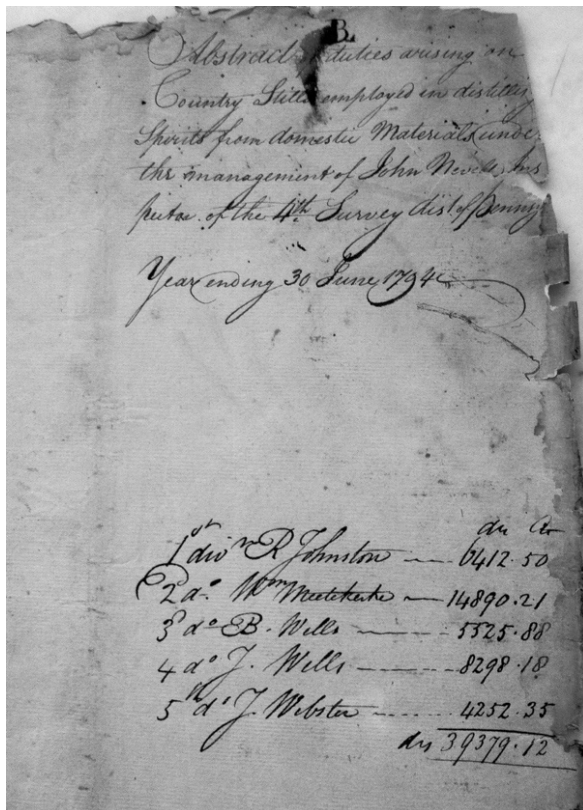 B.
Abstract duties arising on
Country Stills employed in distilling
Spirits from domestic Materials unde
the management of John Nevell Ins
pector of the 4th Survey dist of Pennsy
Year ending 30 June 1794
ds Cts
1st divn R Johnston 6412.50
2 do Wm 14890.21
3 do B. Wells 5525.88
4 do J. Wells 8298.18
5th do J. Webster 4252.35
ds 39379.12